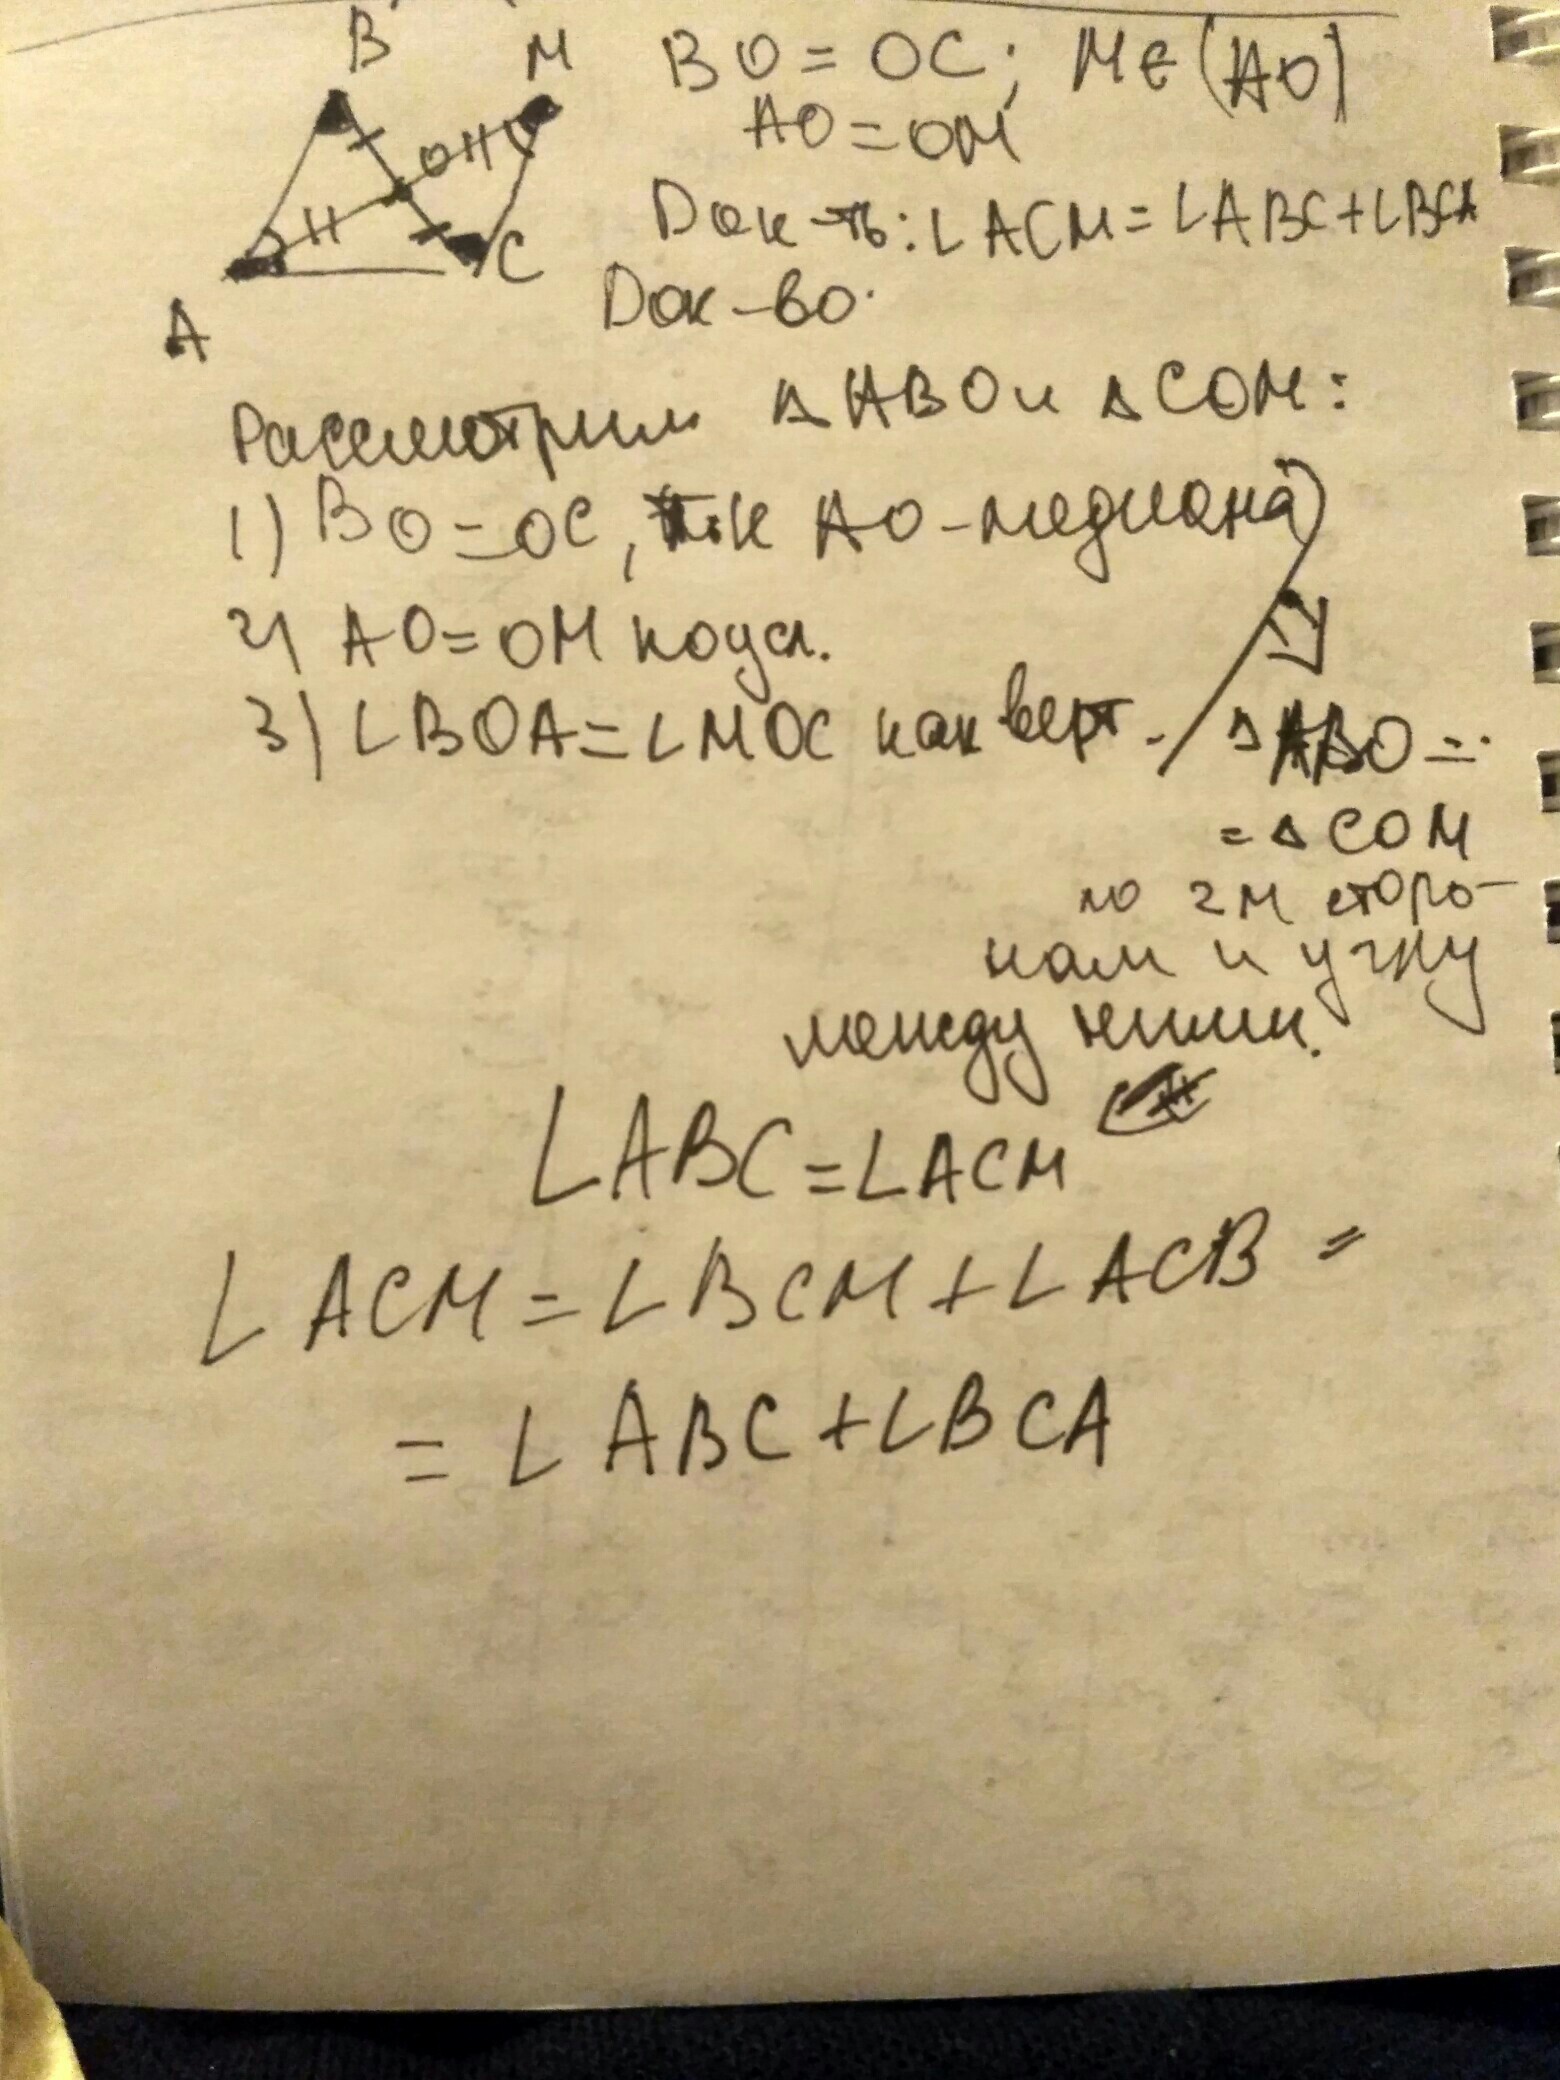 B M BO = OC; M∈(AO)
AO = OM
O
Док-ть: ∠ACM = ∠ABC + ∠BCA
C
A
Док-во.
Рассмотрим ΔABO и ΔCOM:
1) BO = OC, т.к AO - медиана
2) AO = OM по усл.
3) ∠BOA = ∠MOC как верт.
ΔABO =
= ΔCOM
по 2м сторо-
нам и углу
между ними.
∠ABC = ∠ACM
∠ACM = ∠BCM + ∠ACB =
= ∠ABC + ∠BCA